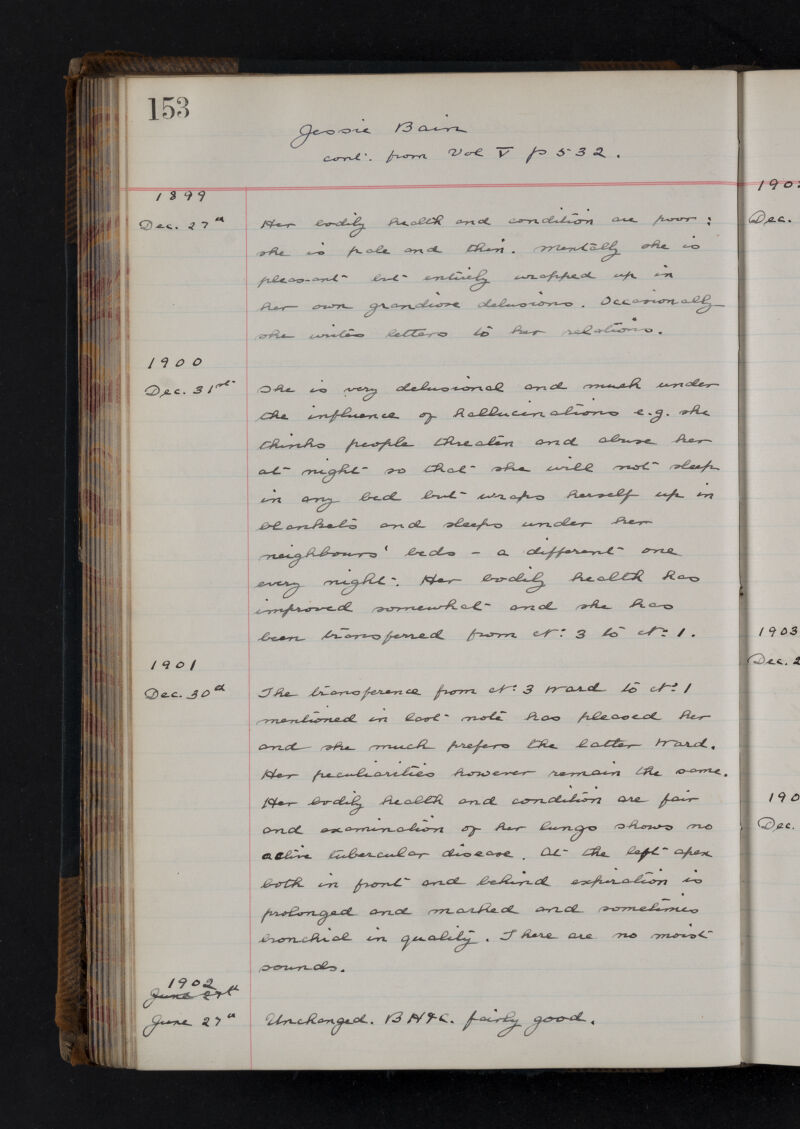 153
Jessie Bain
cont. from Vol V p 532.
1899
Dec. 27th Her bodily health and condition are poor:
she is pale and thin. Mentally she is
pleasant but entirely wrapped up in
her own grandiose delusions. Occasionally
she writes letters to her relations.
1900
Dec. 31st She is very delusional and much under
the influence of hallucinations e.g. she
thinks people threaten and abuse her
at night so that she will not sleep
in any bed but wraps herself up in
blankets and sleeps under her
neighbours' beds - a different one
every night. Her bodily health has
improved somewhat and she has
been transferred from No: 3 to No: 1.
1901
Dec. 30th The transference from No: 3 Ward to No: 1
mentioned in last note has pleased her
and she much prefers the latter Ward.
Her peculiarities however remain the same.
Her bodily health and condition are fair
and examination of her lungs shows no
active tubercular disease. At the left apex
both in front and behind expiration is
prolonged and marked and sometimes
bronchial in quality. There are no moist
sounds.
1902
June 27th
June 27th Unchanged. B H & C. fairly good.
190
Dec.
1903
Dec. 2
190
Dec.